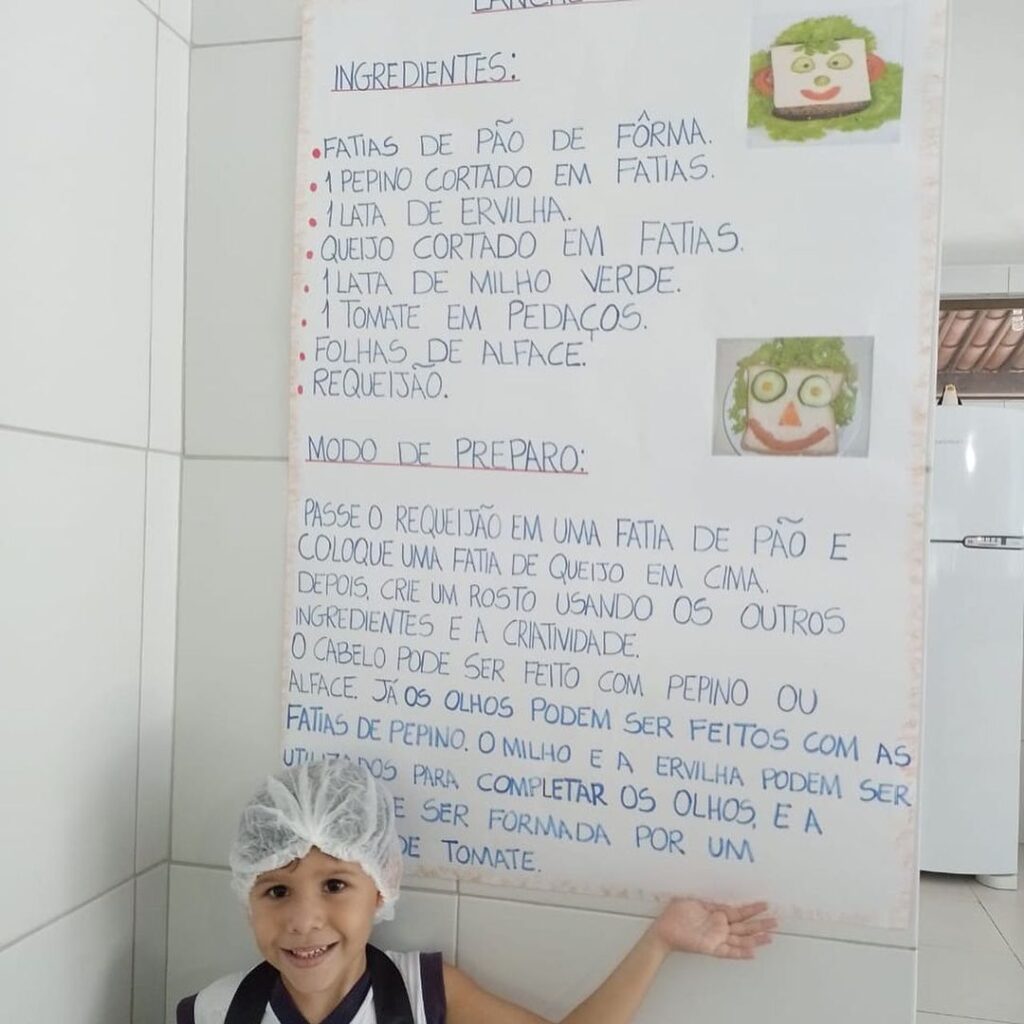 INGREDIENTES:
• FATIAS DE PÃO DE FÔRMA.
• 1 PEPINO CORTADO EM FATIAS.
• 1 LATA DE ERVILHA.
• QUEIJO CORTADO EM FATIAS.
• 1 LATA DE MILHO VERDE.
• 1 TOMATE EM PEDAÇOS.
• FOLHAS DE ALFACE.
• REQUEIJÃO.
MODO DE PREPARO:
PASSE O REQUEIJÃO EM UMA FATIA DE PÃO E
COLOQUE UMA FATIA DE QUEIJO EM CIMA.
DEPOIS, CRIE UM ROSTO USANDO OS OUTROS
INGREDIENTES E A CRIATIVIDADE.
O CABELO PODE SER FEITO COM PEPINO OU
ALFACE. JÁ OS OLHOS PODEM SER FEITOS COM AS
FATIAS DE PEPINO. O MILHO E A ERVILHA PODEM SER
UTILIZADOS PARA COMPLETAR OS OLHOS, E A
SER FORMADA POR UM
DE TOMATE.